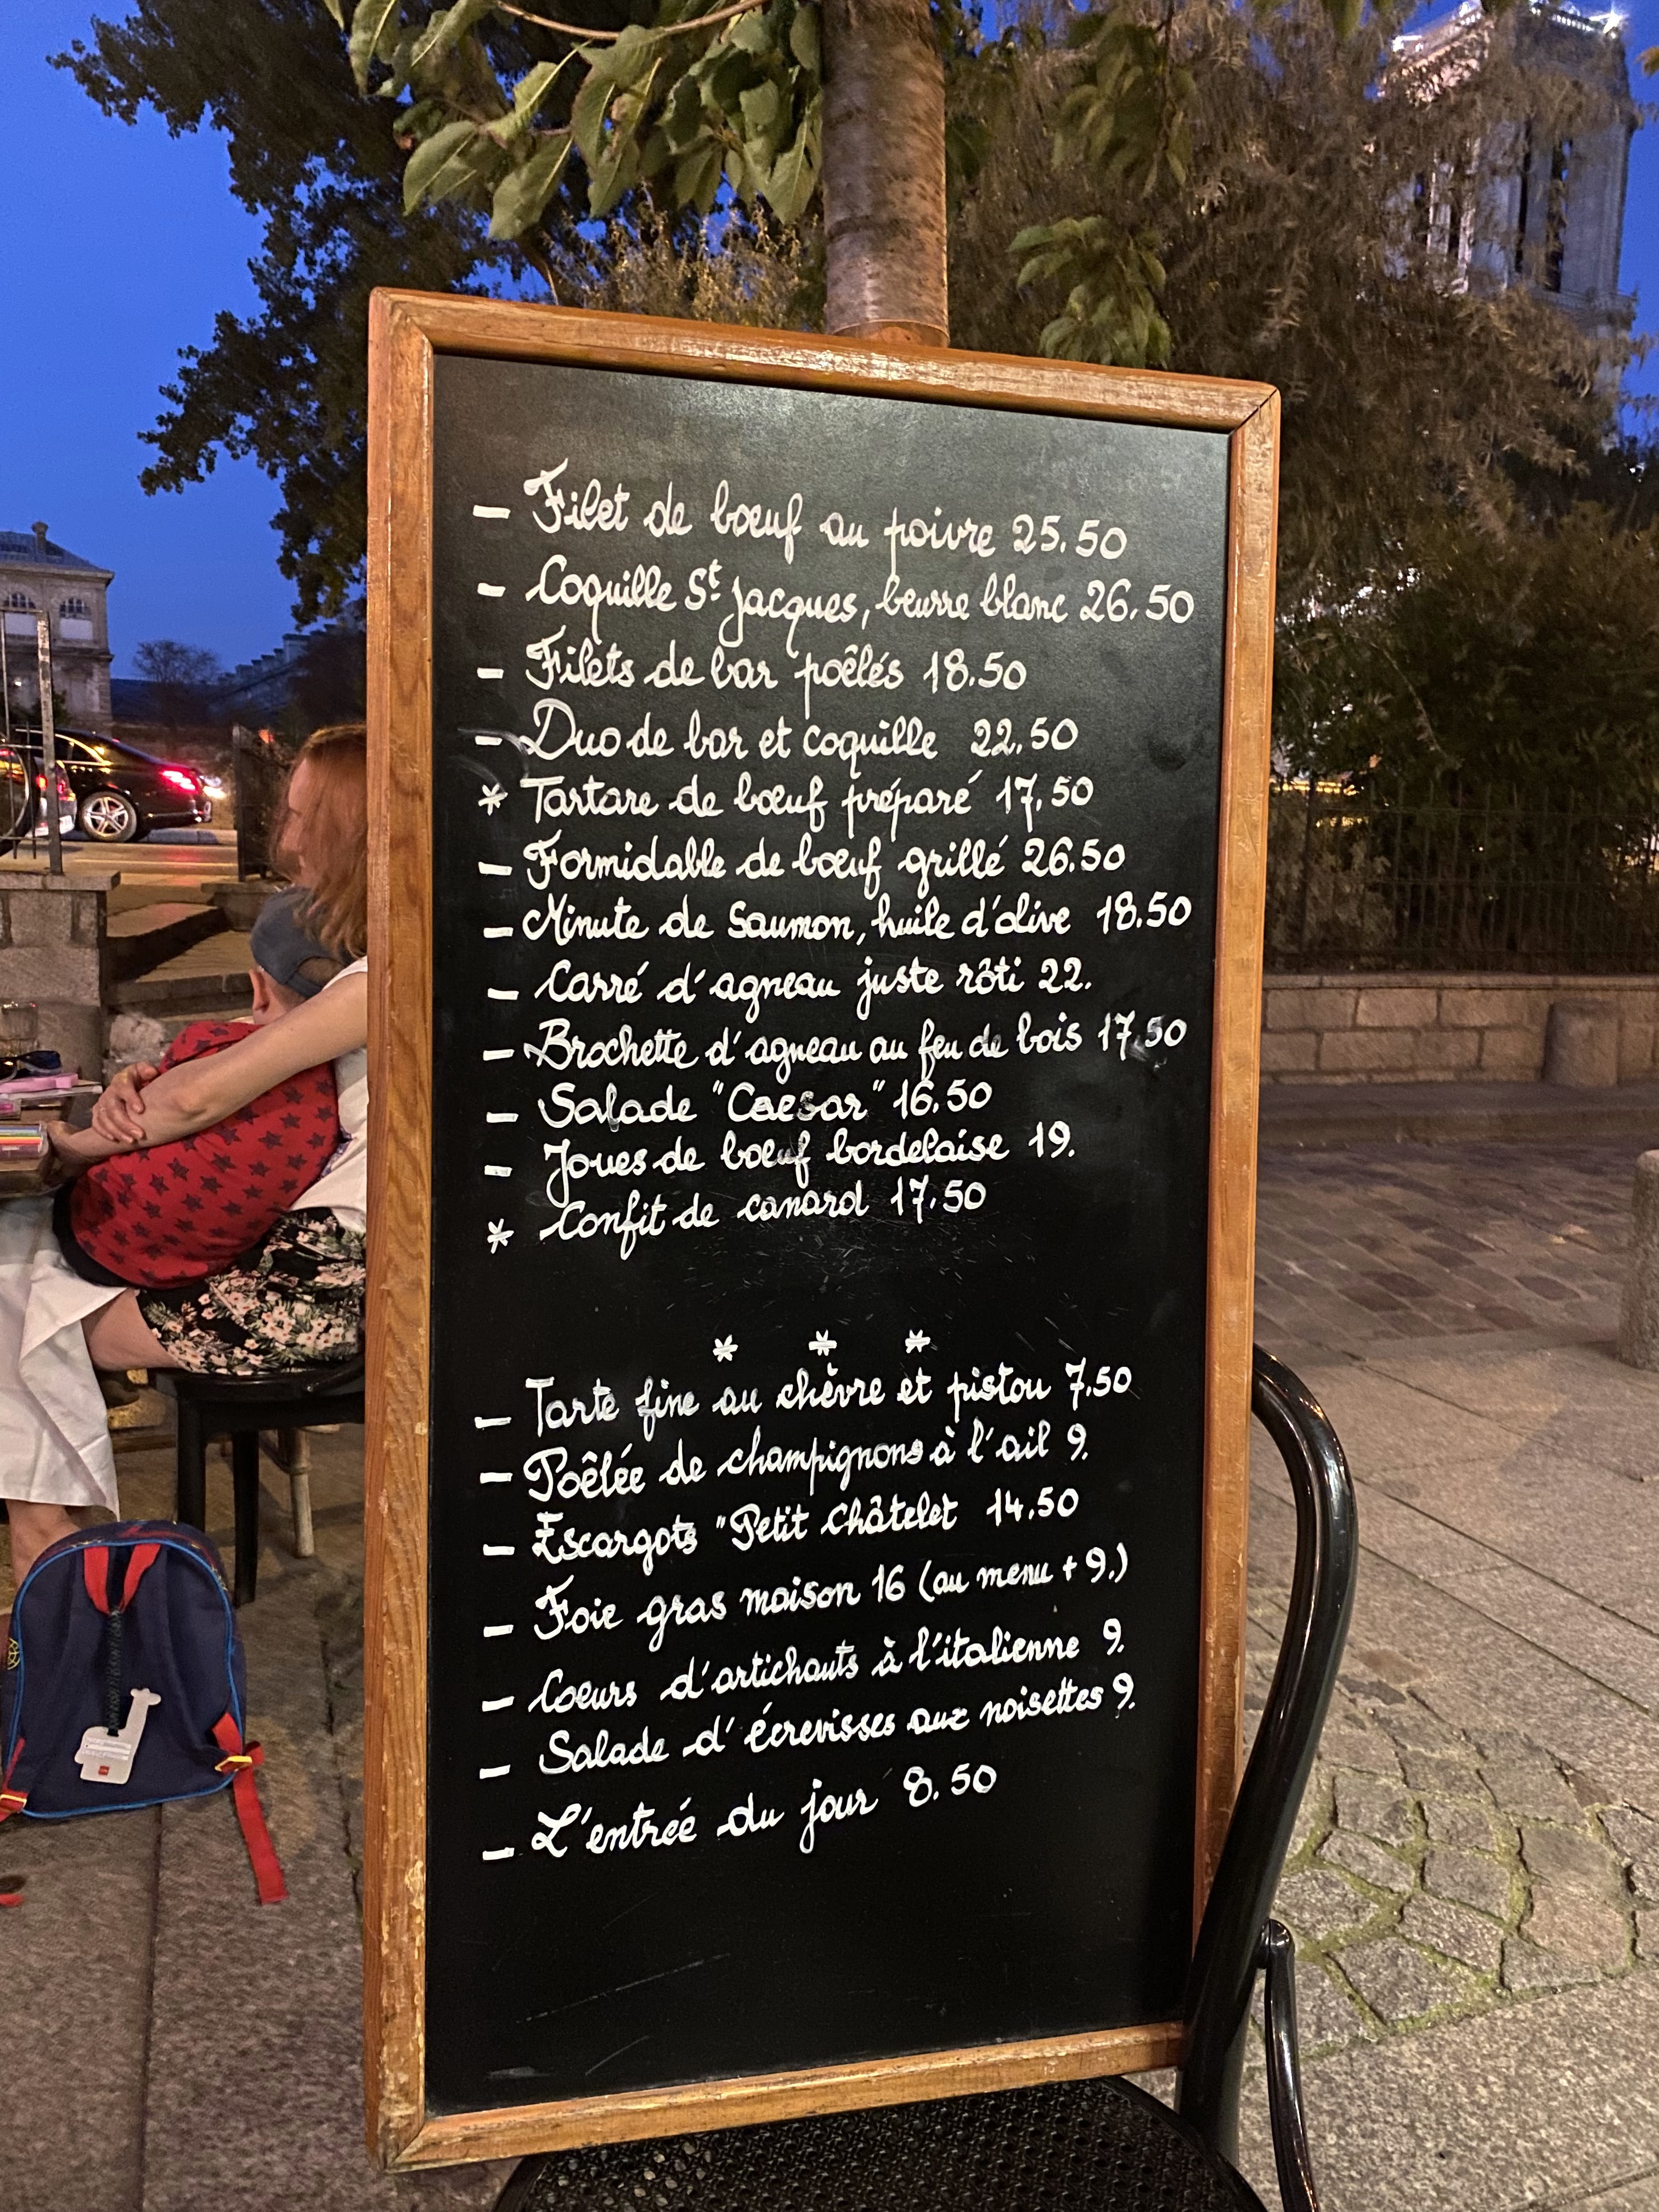 - Filet de bœuf au poivre 25.50
- Coquille St Jacques, beurre blanc 26.50
- Filets de bar poêlés 18.50
- Duo de bar et coquille 22.50
* Tartare de bœuf préparé 17.50
- Formidable de bœuf grillé 26.50
- Minute de Saumon, huile d'olive 18.50
- Carré d'agneau juste rôti 22.
- Brochette d'agneau au feu de bois 17.50
- Salade "Caesar" 16.50
- Joues de bœuf bordelaise 19.
* Confit de canard 17.50
* * *
- Tarte fine au chèvre et pistou 7.50
- Poêlée de champignons à l'ail 9.
- Escargots "Petit Châtelet 14.50
- Foie gras maison 16 (au menu + 9.)
- Coeurs d'artichauts à l'italienne 9.
- Salade d'écrevisses aux noisettes 9.
- L'entrée du jour 8.50